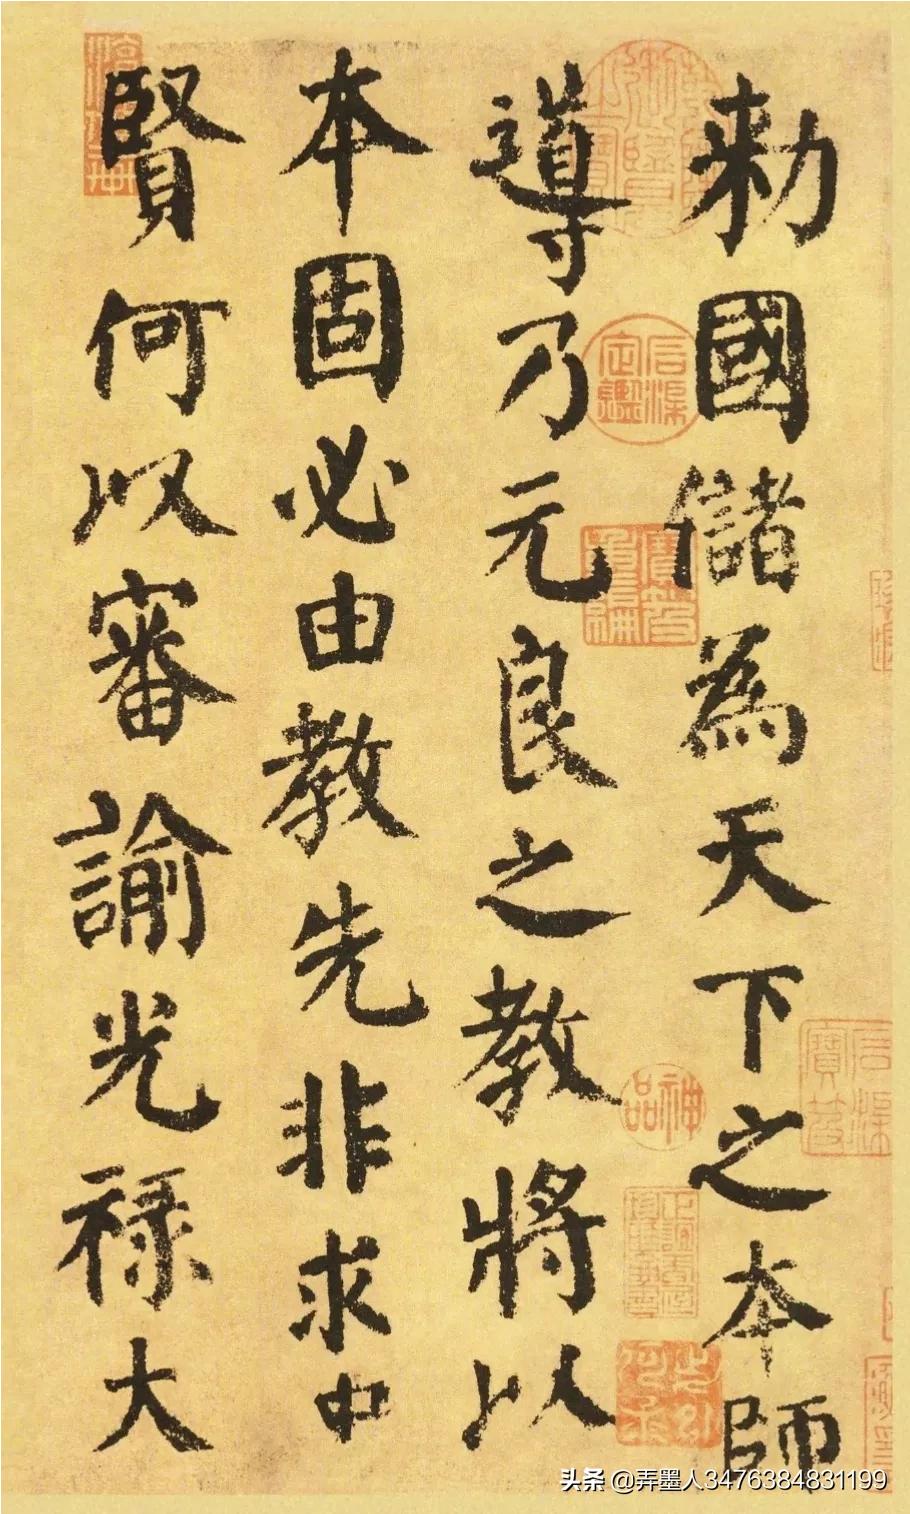 勑國儲為天下之本師
導乃元良之教將以
本固必由教先非求中
賢何以審諭光禄大
神品
头条 @弄墨人3476384831199